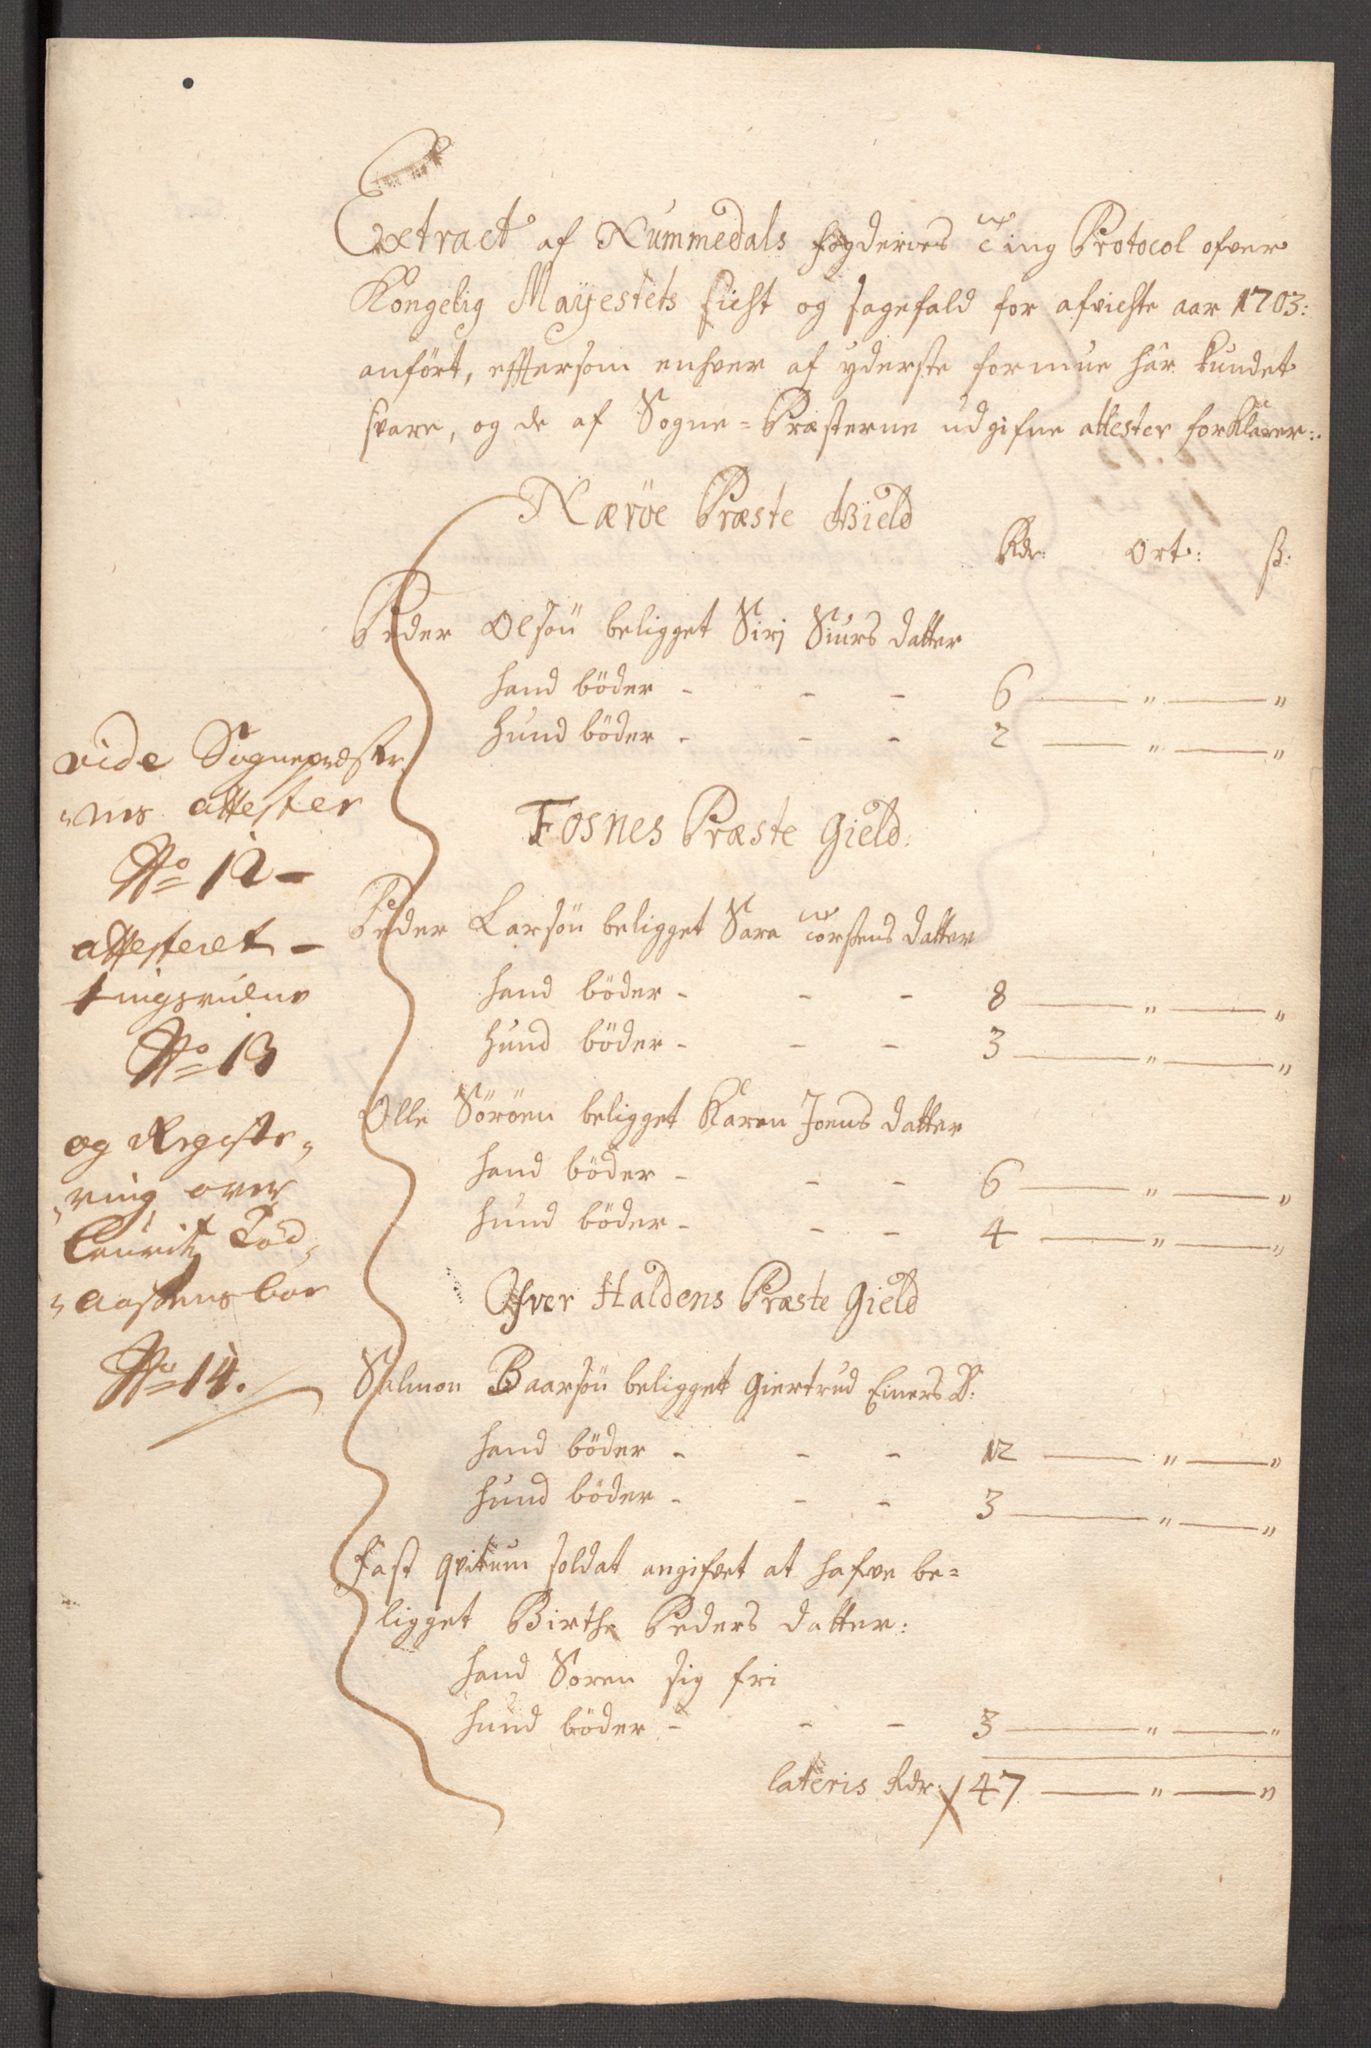 Extract af Nummedals fogderies Ting Protocol ofver
Kongelig Mayestets Sicht og sagefald for afvichte aar 1703:
anført, efftersom enhver af yderste formue har kundet
svare, og de af Sogne-Præsterne udgifne attester forklarer:
Nærøe Præste Gield
Rdr: Ort: ß:
Peder Olsøn beligget Sirj Siurs datter
hand bøder - - - 6 — " — "
hund bøder - - - 2 — " — "
Fosnes Præste Gield:
Peder Larsøn beligget Sara Torstens datter
hand bøder - - - 8 — " — "
hund bøder - - - 3 — " — "
Olle Sørøen beligget Karen Joens datter
hand bøder - - - 6 — " — "
hund bøder - - - 4 — " — "
Ofver Haldens Præste Gield
Salmon Baarsøn beligget Giertrud Einers D:
hand bøder - - - 12 — " — "
hund bøder - - - 3 — " — "
Fast soldat angifvet at hafve be-
ligget Birthe Peders datter:
hand Soren sig fri
hund bøder - - - 3 — " — "
lateris Rdr: 47 — " — "
vide Sognepræster
"nes attester
No 12 -
attesteret -
tingsvidne
No 13
og Registe-
"ring over
Lauritz
boe
No 14.